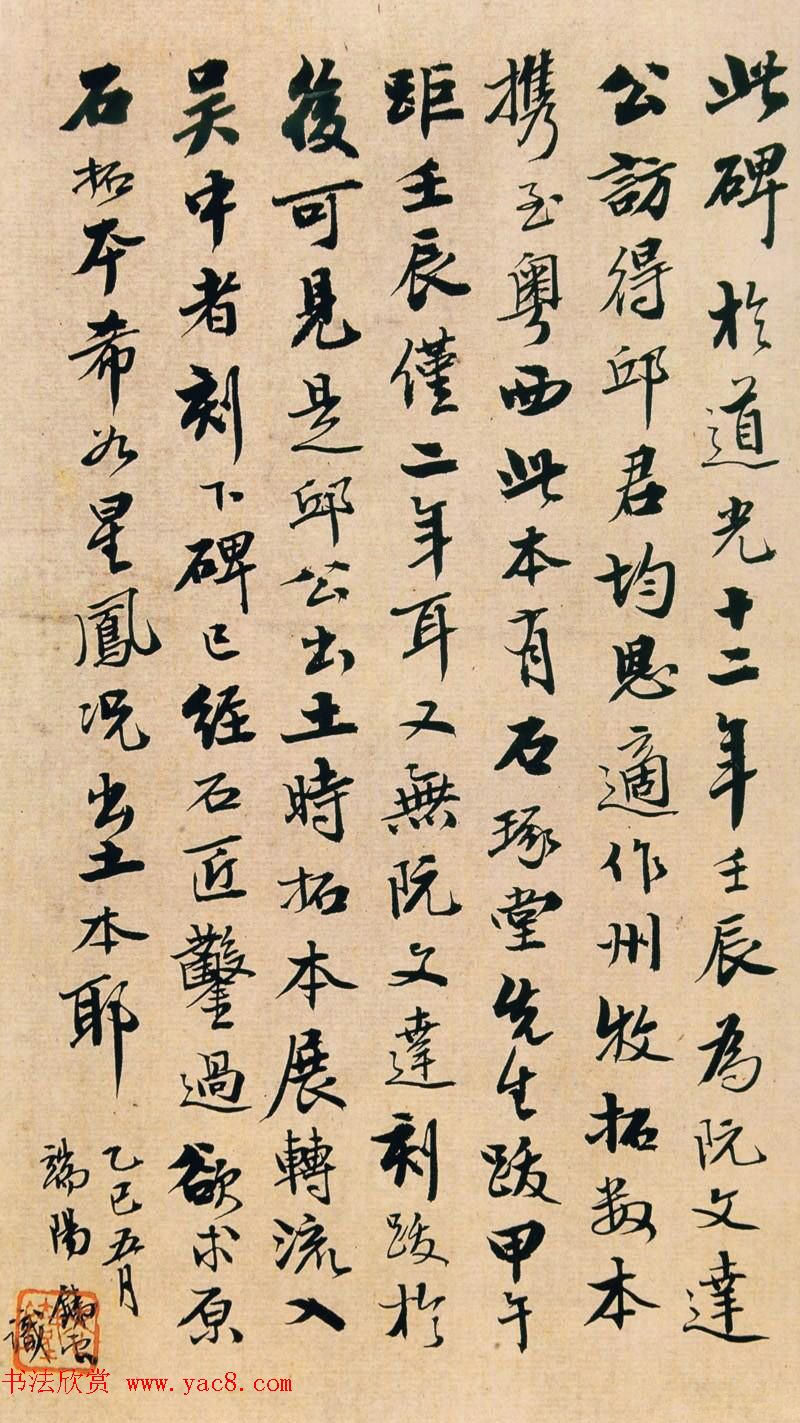 此碑於道光十二年壬辰為阮文達
公訪得邱君均恩適作州牧拓数本
携至粵西此本有石琢堂先生跋甲午
距壬辰僅二年耳又無阮文達刻跋於
後可見是邱公出土時拓本展轉流入
吴中者刻下碑已經石匠鑿過欲求原
石拓本希如星鳳况出土本耶
乙巳五月
端陽
鐵雲
識
书法欣赏 www.yac8.com